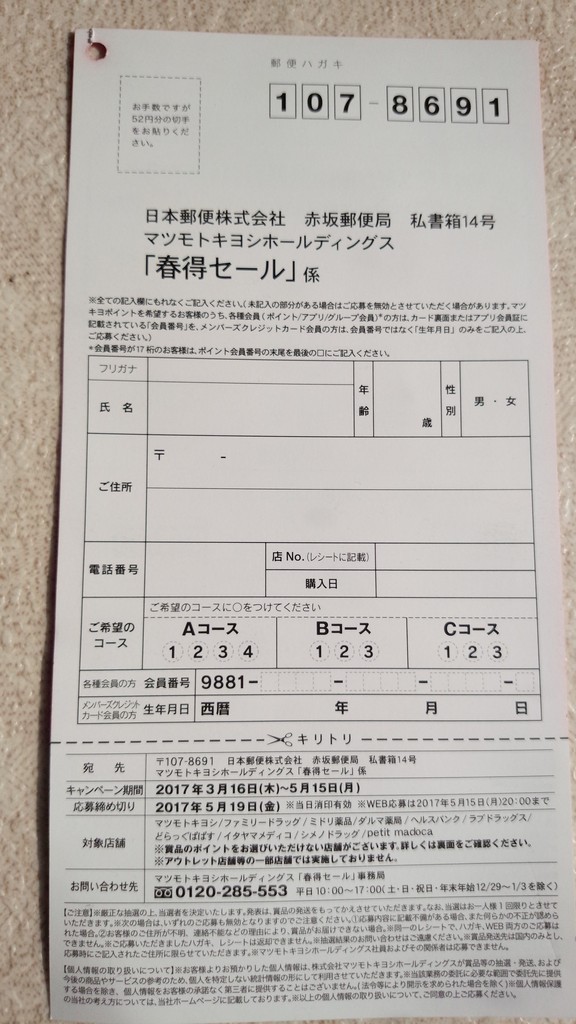 郵便ハガキ
お手数ですが
52円分の切手
をお貼りくだ
さい。
107-8691
日本郵便株式会社 赤坂郵便局 私書箱14号
マツモトキヨシホールディングス
「春得セール」係
※全ての記入欄にもれなくご記入ください。(未記入の部分がある場合はご応募を無効とさせていただく場合があります。マツ
キヨポイントを希望するお客様のうち、各種会員(ポイント/アプリ/グループ会員)*の方は、カード裏面またはアプリ会員証に
記載されている「会員番号」を、メンバーズクレジットカード会員の方は、会員番号ではなく「生年月日」のみをご記入の上、
ご応募ください。)
*会員番号が17桁のお客様は、ポイント会員番号の末尾を最後の□にご記入ください。
フリガナ
氏名
年齢
歳
性別
男・女
ご住所
〒 -
電話番号
店No.(レシートに記載)
購入日
ご希望の
コース
ご希望のコースに○をつけてください
Aコース Bコース Cコース
1 2 3 4 1 2 3 1 2 3
各種会員の方 会員番号 9881- - - -
メンバーズクレジット
カード会員の方 生年月日 西暦 年 月 日
キリトリ
宛先
〒107-8691 日本郵便株式会社 赤坂郵便局 私書箱14号
マツモトキヨシホールディングス「春得セール」係
キャンペーン期間 2017年3月16日(木)~5月15日(月)
応募締め切り 2017年5月19日(金) ※当日消印有効 ※WEB応募は2017年5月15日(月)20:00まで
対象店舗
マツモトキヨシ/ファミリードラッグ/ミドリ薬品/ダルマ薬局/ヘルスバンク/ラブドラッグス/
どらっぐぱぱす/イタヤマメディコ/シメノドラッグ/petit madoca
※賞品のポイントをお選びいただけない店舗がございます。詳しくは裏面をご確認ください。
※アウトレット店舗等の一部店舗では実施しておりません。
お問い合わせ先
マツモトキヨシホールディングス「春得セール」事務局
0120-285-553 平日10:00~17:00(土・日・祝日・年末年始12/29~1/3を除く)
【ご注意】※厳正な抽選の上、当選者を決定いたします。発表は、賞品の発送をもってかえさせていただきます。なお、当選はお一人様1回限りとさせて
いただきます。※次の場合は、いずれのご応募も無効となりますのでご注意ください。①応募内容に記載不備がある場合、また何らかの不正が認めら
れた場合。②お客様のご住所が不明、連絡不能などの理由により、賞品がお届けできない場合。※同一のレシートで、ハガキ、WEB両方のご応募は
できません。※ご応募いただきましたハガキ、レシートは返却できません。※抽選結果のお問い合わせはご遠慮ください。※賞品発送先は国内のみとし、
応募時にご記入されたご住所に限らせていただきます。※マツモトキヨシホールディングス社員およびその関係者は応募できません。
【個人情報の取り扱いについて】※お客様よりお預かりした個人情報は、株式会社マツモトキヨシホールディングスが賞品等の抽選・発送、および
今後の商品やサービスの参考のため、個人を特定しない統計情報の形にして利用させていただきます。※当該業務の委託に必要な範囲で委託先に提供
する場合を除き、個人情報をお客様の承諾なく第三者に提供することはございません。(法令等により開示を求められた場合を除く)※個人情報保護
の当社の考え方については、当社ホームページに記載しております。※以上の個人情報の取り扱いについて、ご同意の上ご応募ください。